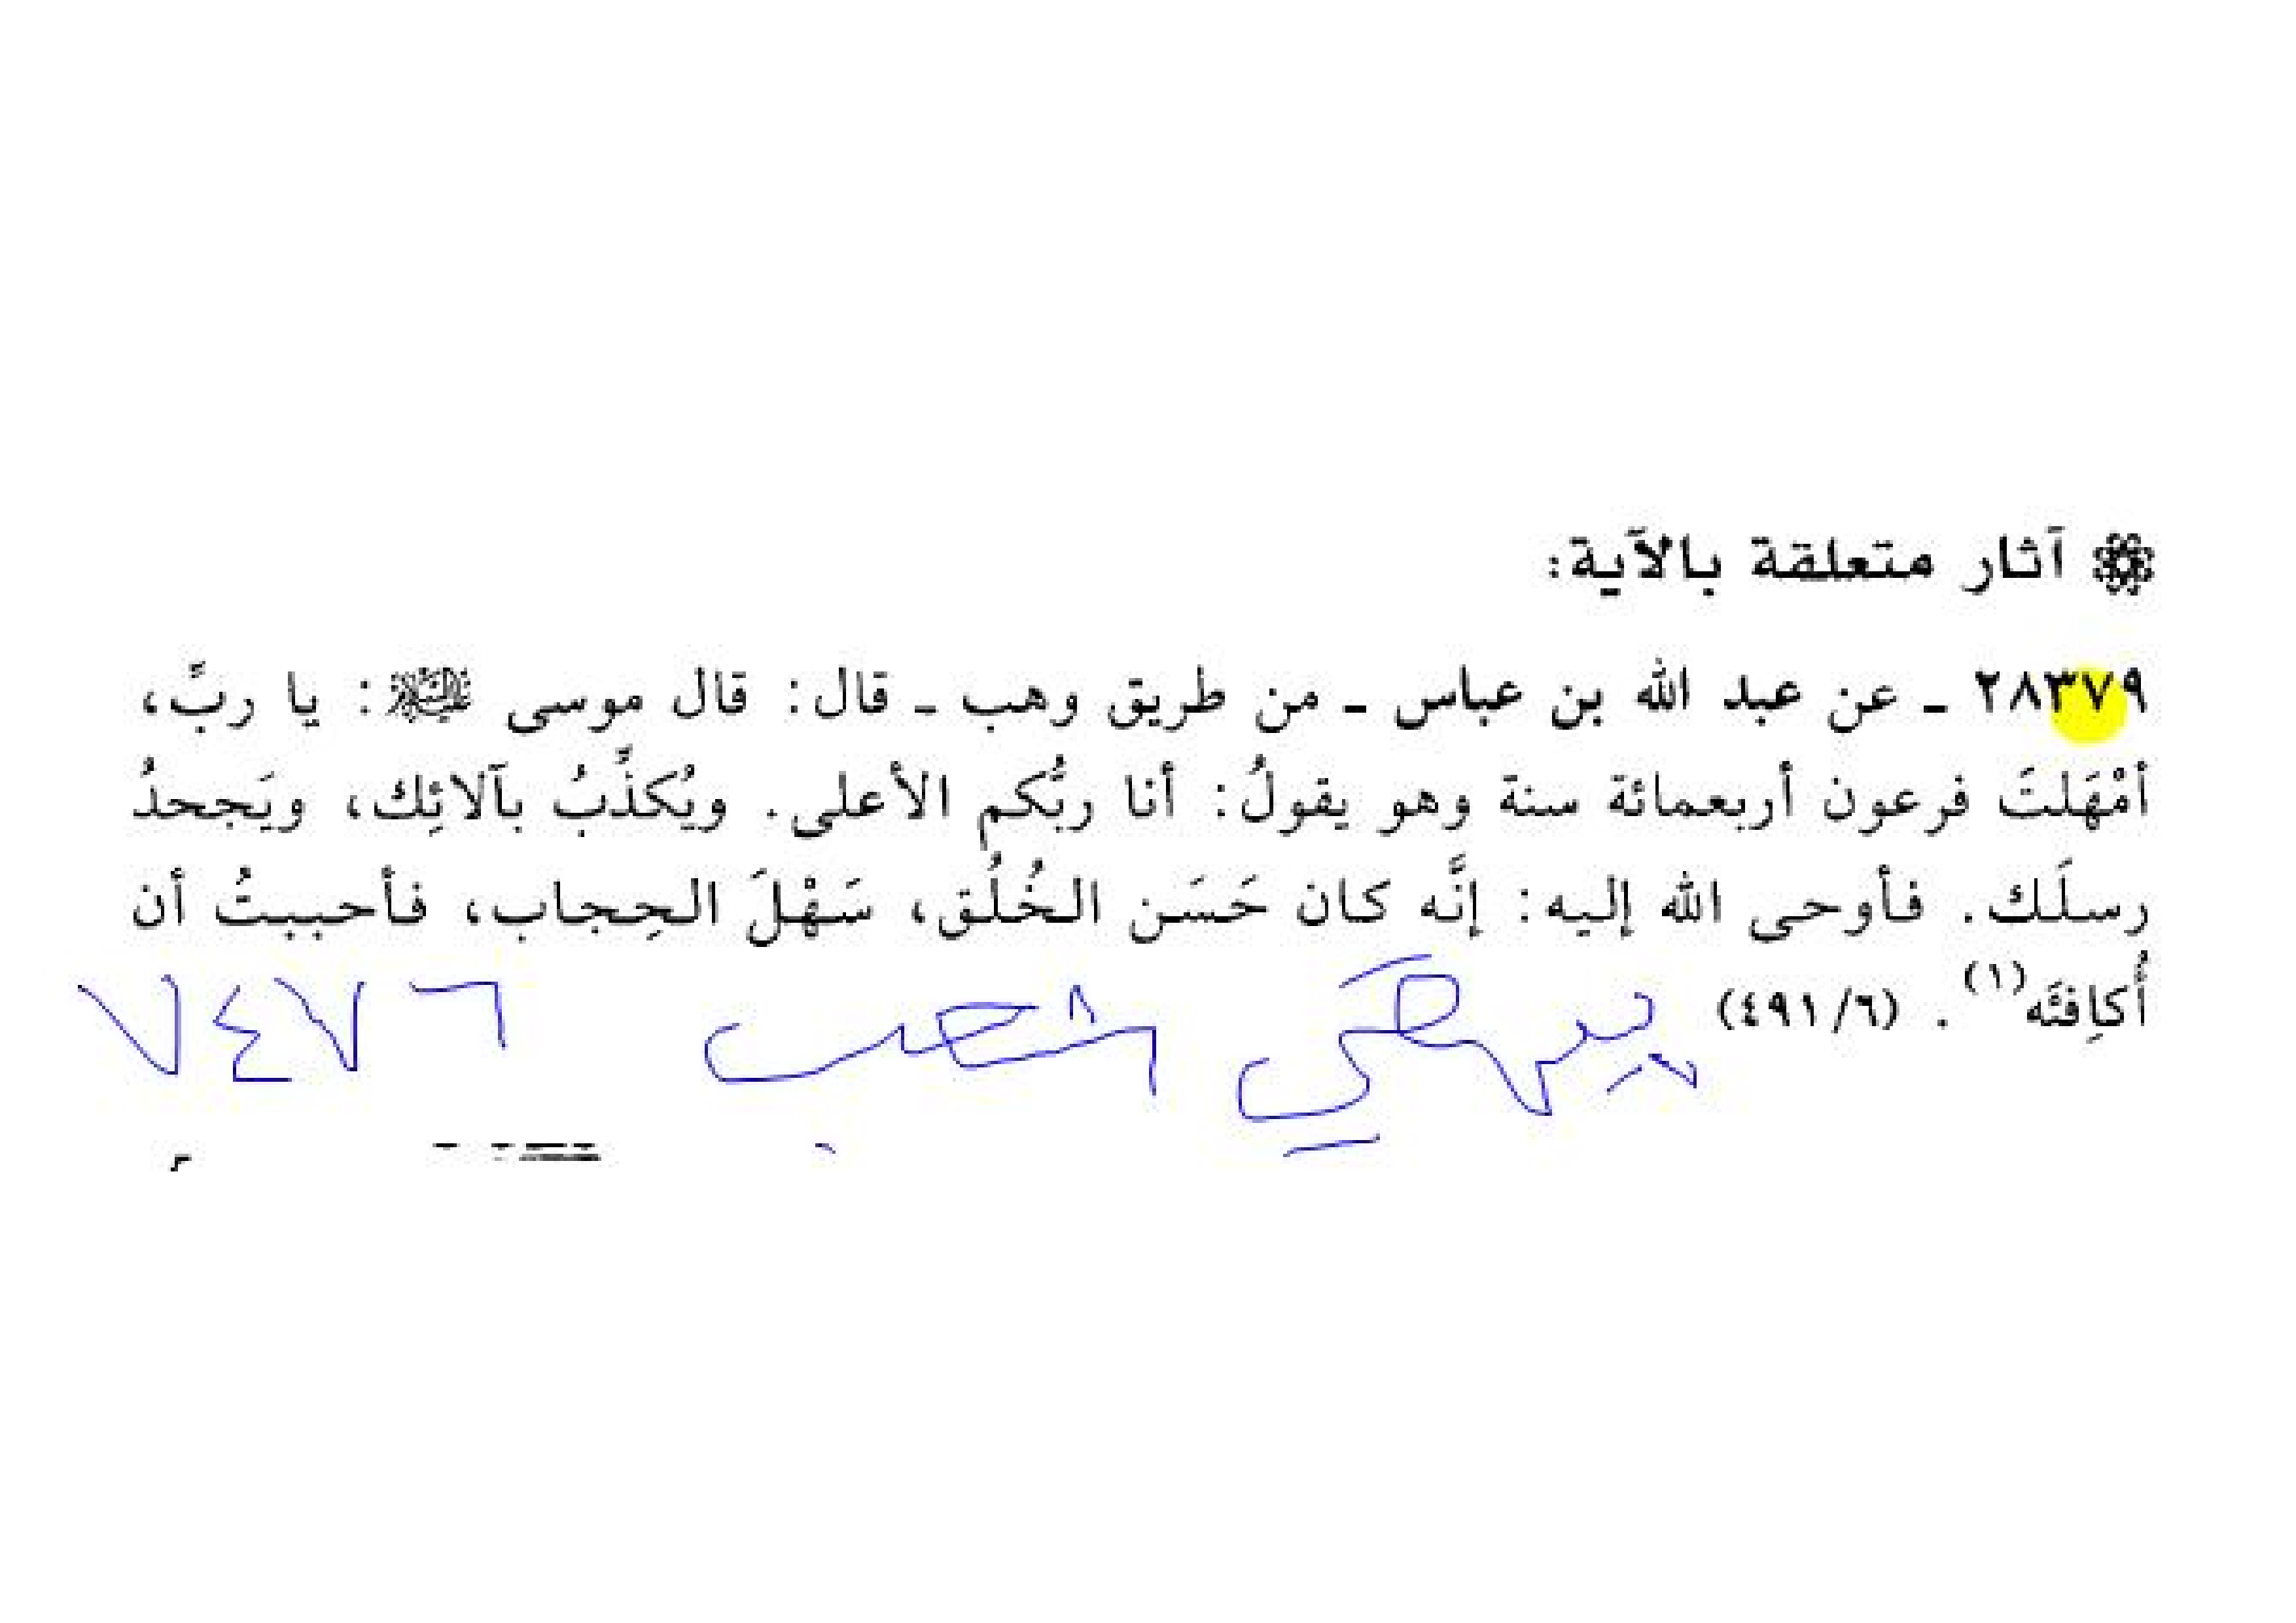 آثار متعلقة بالآية:
٢٨٣٧٩ ـ عن عبد الله بن عباس ـ من طريق وهب ـ قال: قال موسى عليه السلام: يا ربِّ،
أمْهَلتَ فرعون أربعمائة سنة وهو يقولُ: أنا ربُّكم الأعلى. ويُكذِّبُ بآلائِك، ويَجحدُ
رسلَك. فأوحى الله إليه: إنَّه كان حَسَن الخُلُق، سَهْلَ الحِجاب، فأحببتُ أن
أُكافِئَه(١). (٤٩١/٦)
بيهقي شعب ٧٤٧٦